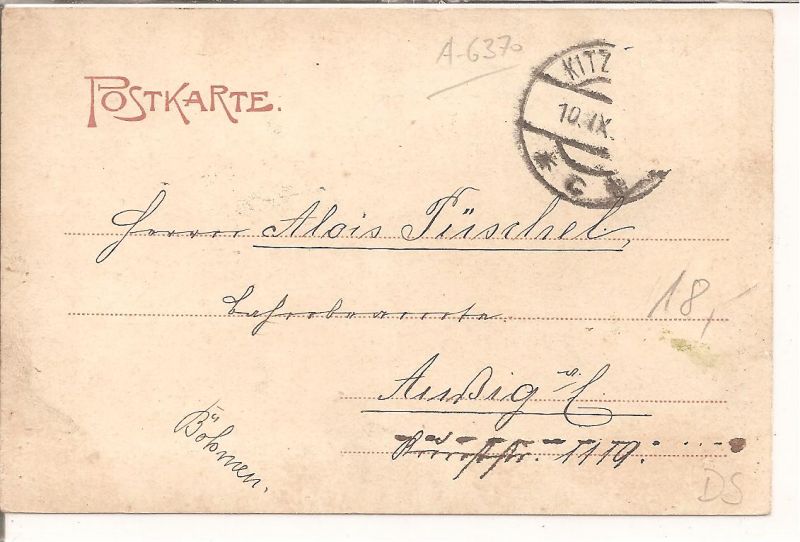 A-6370
POSTKARTE.
KITZ
10. IX.
* C *
Herrn Alois Füschel,
Bahnbeamte
18,-
Außig a/E
Böhmen.
1119.
DS